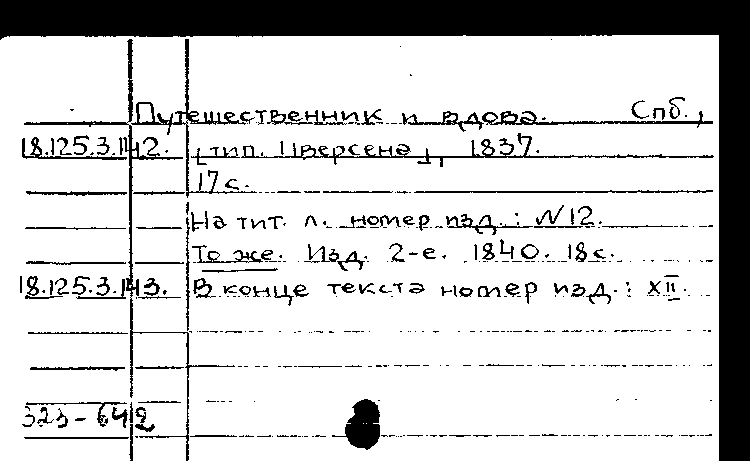 Путешественник и вдова. Спб.,
18.125.3.142. [тип. Иверсена], 1837.
17 с.
На тит. л. номер изд.: N 12.
То же. Изд. 2-е. 1840. 18 с.
18.125.3.143. В конце текста номер изд.: XII.
323-642